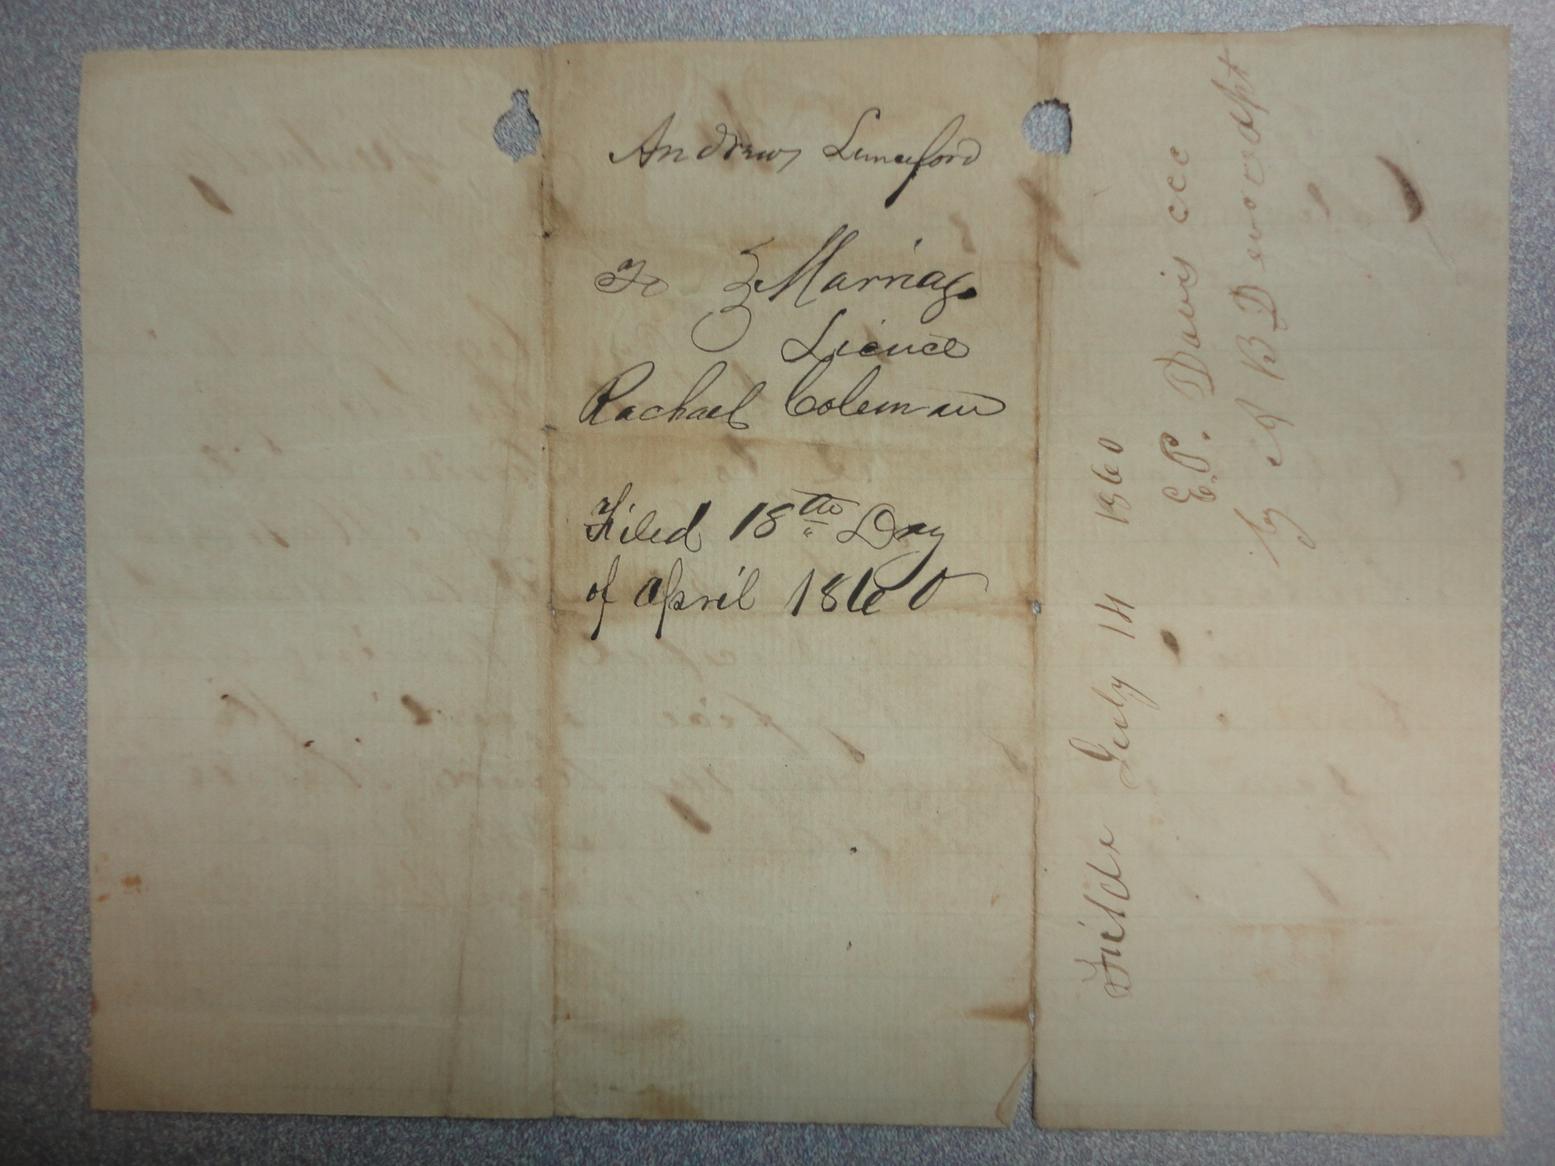 Andrew Lunceford
To } Marriag
Licence
Rachael Coleman
Filed 18th Day
of April 1860
Feilde July 14 1860
E.P. Davis ccc
by A B Dewood dpt